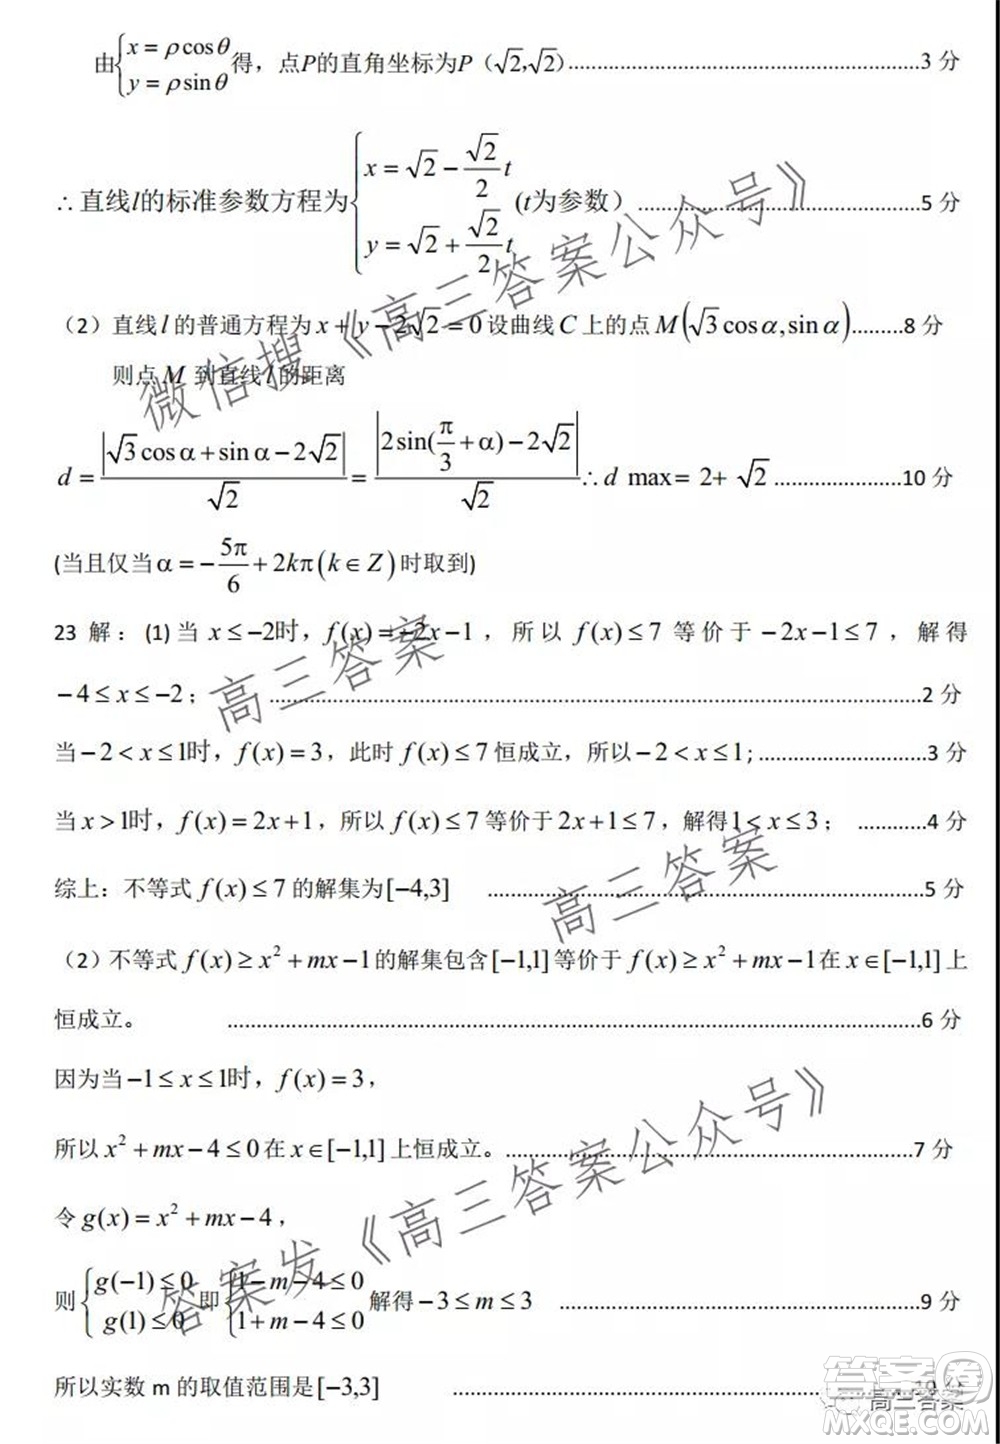 由{x=ρcosθ y=ρsinθ 得，点P的直角坐标为P（√2,√2）......3 分
∴直线l的标准参数方程为{x=√2-(√2/2)t y=√2+(√2/2)t (t为参数）......5 分
（2）直线 l 的普通方程为 x+y-2√2=0 设曲线 C 上的点 M(√3cosα,sinα)......8 分
则点 M 到直线 l 的距离
d=|√3cosα+sinα-2√2|/√2=|2sin(π/3+α)-2√2|/√2 ∴d max= 2+ √2......10 分
(当且仅当 α=-5π/6+2kπ(k∈Z) 时取到)
23 解：(1)当 x≤-2时，f(x)=-2x-1，所以 f(x)≤7 等价于 -2x-1≤7，解得
-4≤x≤-2；......2 分
当-2<x≤1时，f(x)=3，此时 f(x)≤7 恒成立，所以-2<x≤1;......3 分
当x>1时，f(x)=2x+1，所以 f(x)≤7 等价于2x+1≤7，解得1<x≤3；......4 分
综上：不等式 f(x)≤7 的解集为[-4,3]......5 分
（2）不等式 f(x)≥x²+mx-1的解集包含[-1,1]等价于 f(x)≥x²+mx-1在 x∈[-1,1]上
恒成立。......6 分
因为当-1≤x≤1时，f(x)=3，
所以 x²+mx-4≤0 在 x∈[-1,1]上恒成立。......7 分
令 g(x)=x²+mx-4，
则{g(-1)≤0 g(1)≤0 即{1-m-4≤0 1+m-4≤0 解得-3≤m≤3......9 分
所以实数 m 的取值范围是[-3,3]......10 分
微信搜《高三答案公众号》
高三答案
高三答案
答案发《高三答案公众号》
答案圈
高三答案
MXQE.COM